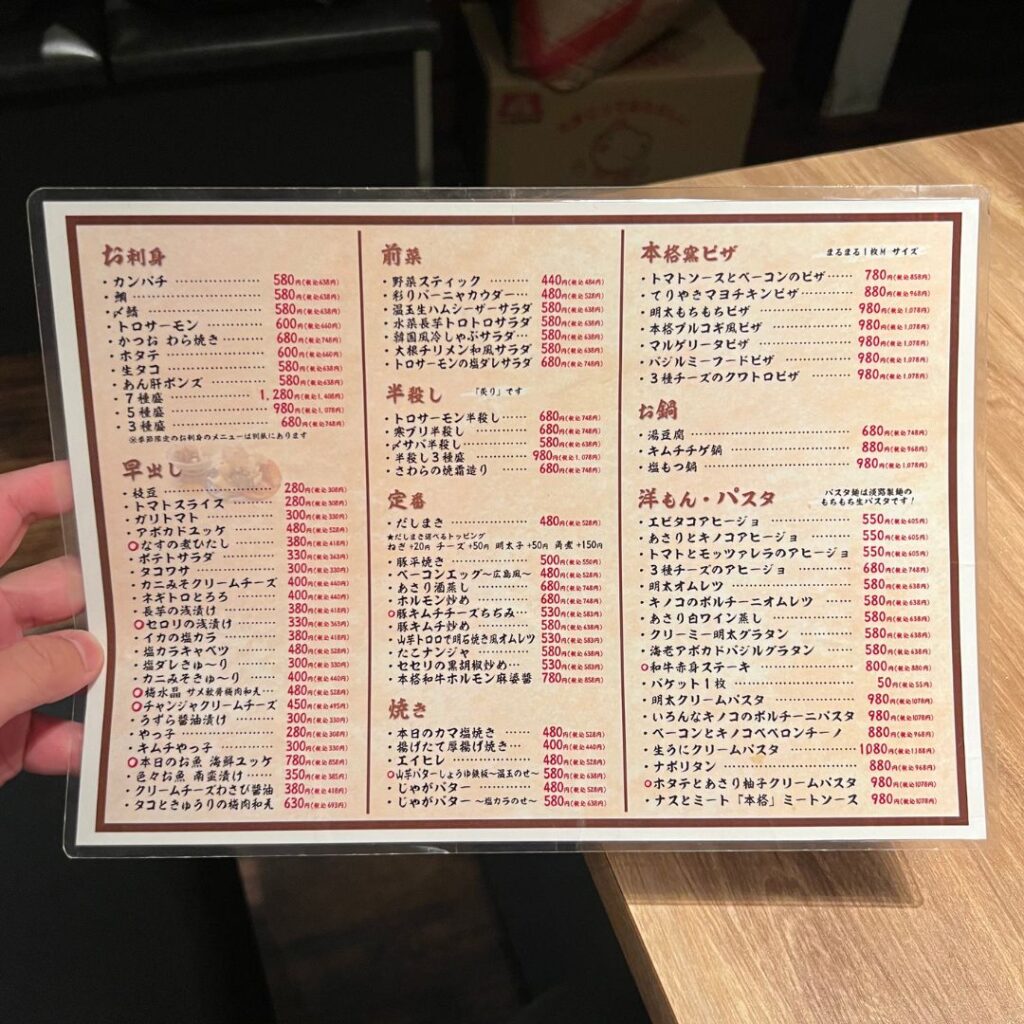 お刺身
・カンパチ 580円(税込638円)
・鯛 580円(税込638円)
・〆鯖 580円(税込638円)
・トロサーモン 600円(税込660円)
・かつお わら焼き 680円(税込748円)
・ホタテ 600円(税込660円)
・生タコ 580円(税込638円)
・あん肝ポンズ 580円(税込638円)
・7種盛 1,280円(税込1,408円)
・5種盛 980円(税込1,078円)
・3種盛 680円(税込748円)
※季節限定のお刺身のメニューは別紙にあります
早出し
・枝豆 280円(税込308円)
・トマトスライス 280円(税込308円)
・ガリトマト 300円(税込330円)
・アボカドユッケ 480円(税込528円)
○なすの煮ひたし 380円(税込418円)
・ポテトサラダ 330円(税込363円)
・タコワサ 330円(税込363円)
・カニみそクリームチーズ 400円(税込440円)
・ネギトロとろろ 400円(税込440円)
・長芋の浅漬け 380円(税込418円)
○セロリの浅漬け 330円(税込363円)
・イカの塩カラ 380円(税込418円)
・塩カラキャベツ 480円(税込528円)
・塩ダレきゅ〜り 300円(税込330円)
・カニみそきゅ〜り 400円(税込440円)
○梅水晶 サメ軟骨梅肉和え… 480円(税込528円)
○チャンジャクリームチーズ 450円(税込495円)
・うずら醤油漬け 300円(税込330円)
・やっ子 280円(税込308円)
・キムチやっ子 300円(税込330円)
○本日のお魚 海鮮ユッケ 780円(税込858円)
・色々お魚 南蛮漬け 350円(税込385円)
・クリームチーズわさび醤油 380円(税込418円)
・タコときゅうりの梅肉和え 630円(税込693円)
前菜
・野菜スティック 440円(税込484円)
・彩りバーニャカウダー… 480円(税込528円)
・温玉生ハムシーザーサラダ 580円(税込638円)
・水菜長芋トロトロサラダ 580円(税込638円)
・韓国風冷しゃぶサラダ… 580円(税込638円)
・大根チリメン和風サラダ 580円(税込638円)
・トロサーモンの塩ダレサラダ 680円(税込748円)
半殺し 「炙り」です
・トロサーモン半殺し 680円(税込748円)
・寒ブリ半殺し 680円(税込748円)
・〆サバ半殺し 580円(税込638円)
・半殺し3種盛 980円(税込1,078円)
・さわらの焼霜造り 680円(税込748円)
定番
・だしまき 480円(税込528円)
★だしまき選べるトッピング
ねぎ+20円 チーズ+50円 明太子+50円 肉煮+150円
・豚平焼き 500円(税込550円)
・ベーコンエッグ〜広島風〜 480円(税込528円)
・あさり酒蒸し 680円(税込748円)
・ホルモン炒め 680円(税込748円)
○豚キムチチーズちぢみ… 530円(税込583円)
・豚キムチ炒め 580円(税込638円)
・山芋トロロで明石焼き風オムレツ 530円(税込583円)
・たこナンジャ 580円(税込638円)
・セセリの黒胡椒炒め… 530円(税込583円)
・本格和牛ホルモン麻婆醤 780円(税込858円)
焼き
・本日のカマ塩焼き 480円(税込528円)
・揚げたて厚揚げ焼き 400円(税込440円)
・エイヒレ 480円(税込528円)
○山芋バターしょうゆ鉄板〜温玉のせ〜 580円(税込638円)
・じゃがバター 480円(税込528円)
・じゃがバター 〜塩カラのせ〜 580円(税込638円)
本格窯ピザ まるまる1枚Mサイズ
・トマトソースとベーコンのピザ 780円(税込858円)
・てりやきマヨチキンピザ 880円(税込968円)
・明太もちもちピザ 980円(税込1,078円)
・本格プルコギ風ピザ 980円(税込1,078円)
・マルゲリータピザ 980円(税込1,078円)
・バジルミーフードピザ 980円(税込1,078円)
・3種チーズのクワトロピザ 980円(税込1,078円)
お鍋
・湯豆腐 680円(税込748円)
・キムチチゲ鍋 880円(税込968円)
・塩もつ鍋 980円(税込1,078円)
洋もん・パスタ パスタ麺は淡路製麺のもちもち生パスタです!
・エビタコアヒージョ 550円(税込605円)
・あさりとキノコアヒージョ 550円(税込605円)
・トマトとモッツァレラのアヒージョ 550円(税込605円)
・3種チーズのアヒージョ 680円(税込748円)
・明太オムレツ 580円(税込638円)
・キノコのポルチーニオムレツ 580円(税込638円)
・あさり白ワイン蒸し 580円(税込638円)
・クリーミー明太グラタン 580円(税込638円)
・海老アボカドバジルグラタン 580円(税込638円)
○和牛赤身ステーキ 800円(税込880円)
・バゲット1枚 50円(税込55円)
・明太クリームパスタ 980円(税込1078円)
・いろんなキノコのポルチーニパスタ 980円(税込1078円)
・ベーコンとキノコペペロンチーノ 880円(税込968円)
・生うにクリームパスタ 1080円(税込1188円)
・ナポリタン 880円(税込968円)
○ホタテとあさり柚子クリームパスタ 980円(税込1078円)
・ナスとミート「本格」ミートソース 980円(税込1078円)